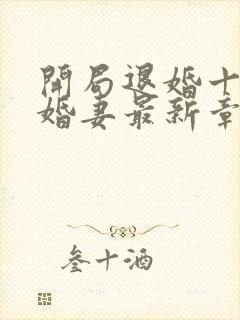 開局退婚十
婚妻最新章
叁十酒